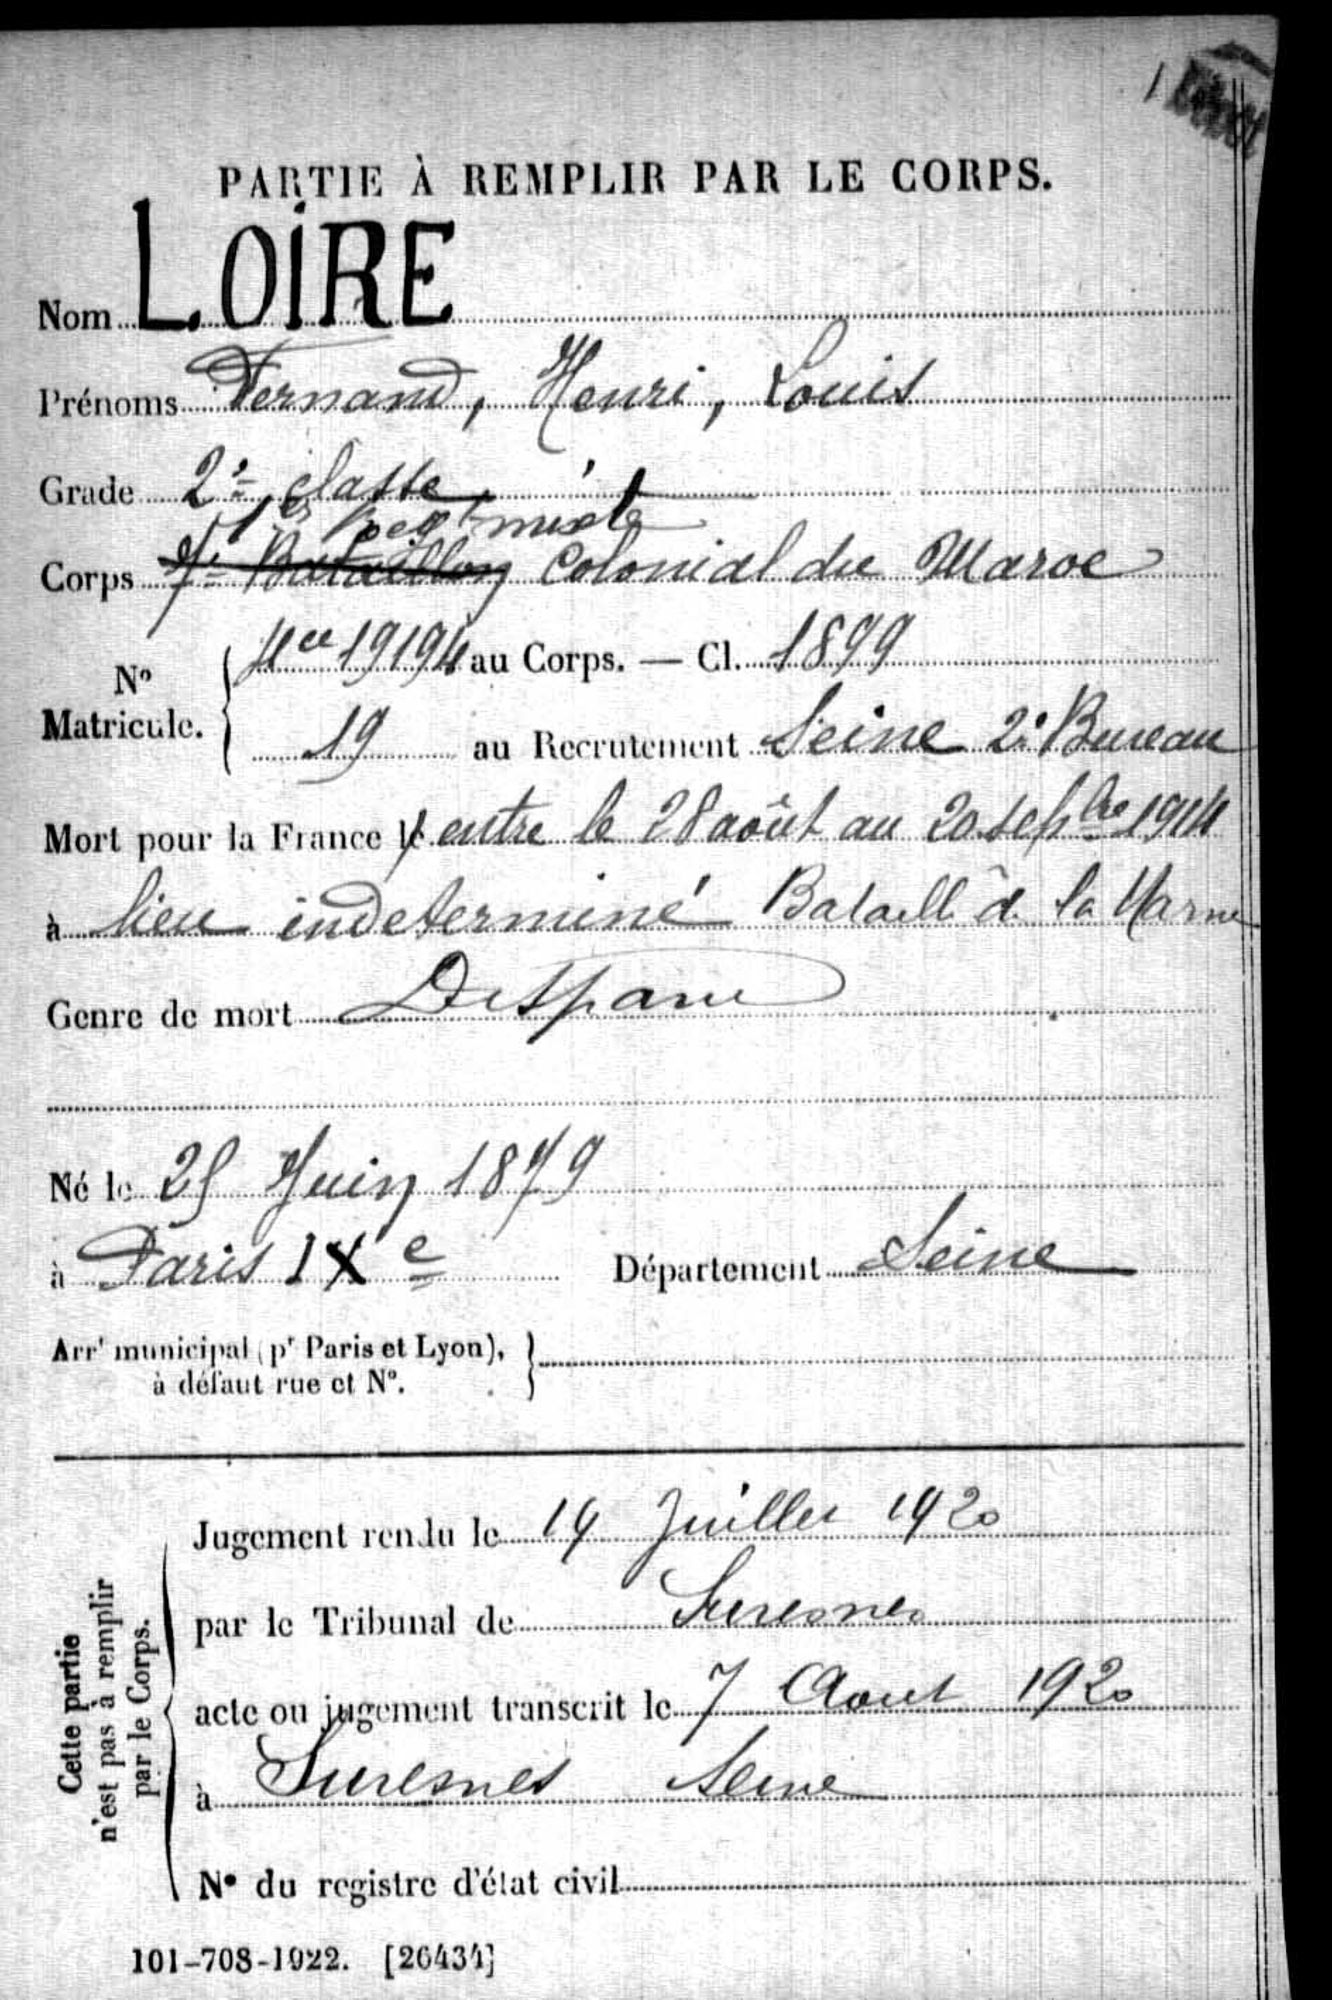 PARTIE À REMPLIR PAR LE CORPS.
Nom LOIRE
Prénoms Fernand, Henri, Louis
Grade 2e classe
1er Regt mixte
Corps Bataillon Colonial du Maroc
No Matricule. 19194 au Corps. — Cl. 1899
19 au Recrutement Seine 2e Bureau
Mort pour la France le entre le 28 août au 20 sepbre 1914
à lieu indeterminé Bataille de la Marne
Genre de mort Disparu
Né le 25 Juin 1879
à Paris IXe Département Seine
Arrt municipal (pr Paris et Lyon),
à défaut rue et No.
Cette partie
n'est pas à remplir
par le Corps.
Jugement rendu le 14 Juillet 1920
par le Tribunal de Suresnes
acte ou jugement transcrit le 7 Aout 1920
à Suresnes Seine
No du registre d'état civil
101-708-1922. [26434]